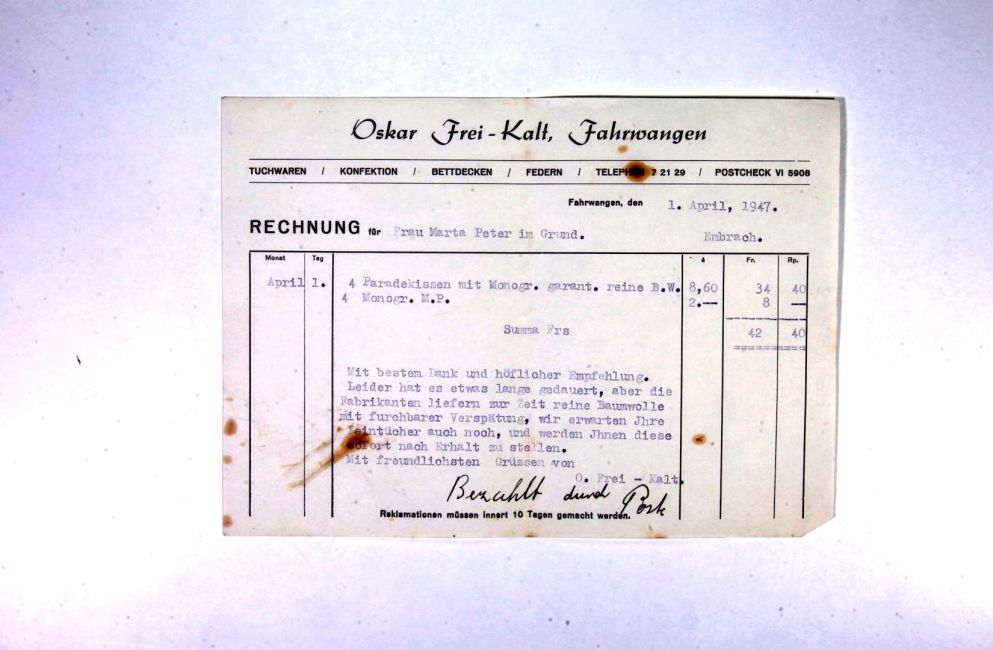 Oskar Frei-Kalt, Fahrwangen
TUCHWAREN / KONFEKTION / BETTDECKEN / FEDERN / TELEPHON 7 21 29 / POSTCHECK VI 5908
Fahrwangen, den 1. April, 1947.
RECHNUNG für Frau Marta Peter im Grund. Embrach.
Monat Tag à Fr. Rp.
April 1. 4 Paradekissen mit Monogr. garant. reine B.W. 8,60 34 40
4 Monogr. M.P. 2.-- 8 --
Summa Frs 42 40
Mit bestem Dank und höflicher Empfehlung.
Leider hat es etwas lange gedauert, aber die
Fabrikanten liefern zur Zeit reine Baumwolle
mit furchbarer Verspätung, wir erwarten Jhre
Leintücher auch noch, und werden Jhnen diese
sofort nach Erhalt zu stellen.
Mit freundlichsten Grüssen von
O. Frei - Kalt.
Bezahlt durch Post
Reklamationen müssen innert 10 Tagen gemacht werden.